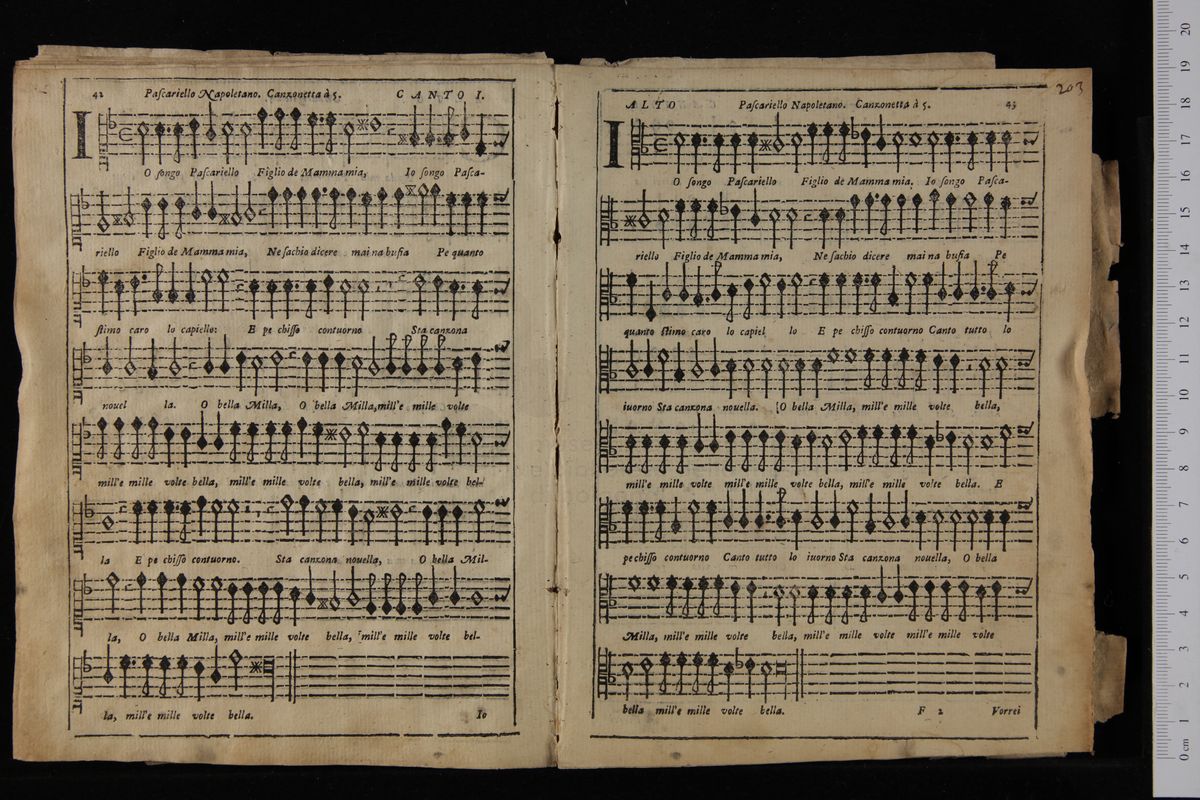 42 Paſcariello Napoletano. Canzonetta à 5. CANTO I.
IO ſongo Paſcariello Figlio de Mamma mia, Io ſongo Paſca-
riello Figlio de Mamma mia, Ne ſachio dicere mai na buſia Pe quanto
ſtimo caro lo capiello: E pe chiſſo contuorno Sta canzona
nouel la. O bella Milla, O bella Milla, mill'e mille volte
mill'e mille volte bella, mill'e mille volte bella, mill'e mille volte bel-
la E pe chiſſo contuorno. Sta canzona nouella, O bella Mil-
la, O bella Milla, mill'e mille volte bella, mill'e mille volte bel-
la, mill'e mille volte bella. Io
203
ALTO Paſcariello Napoletano. Canzonetta à 5. 43
IO ſongo Paſcariello Figlio de Mamma mia. Io ſongo Paſca-
riello Figlio de Mamma mia, Ne ſachio dicere mai na buſia Pe
quanto ſtimo caro lo capiel lo E pe chiſſo contuorno Canto tutto lo
iuorno Sta canzona nouella. O bella Milla, mill'e mille volte bella,
mill'e mille volte mill'e mille volte bella, mill'e mille volte bella. E
pe chiſſo contuorno Canto tutto lo iuorno Sta canzona nouella, O bella
Milla, mill'e mille volte bella, mill'e mille volte mill'e mille volte
bella mill'e mille volte bella. F 2 Vorrei
0 cm 1 2 3 4 5 6 7 8 9 10 11 12 13 14 15 16 17 18 19 20